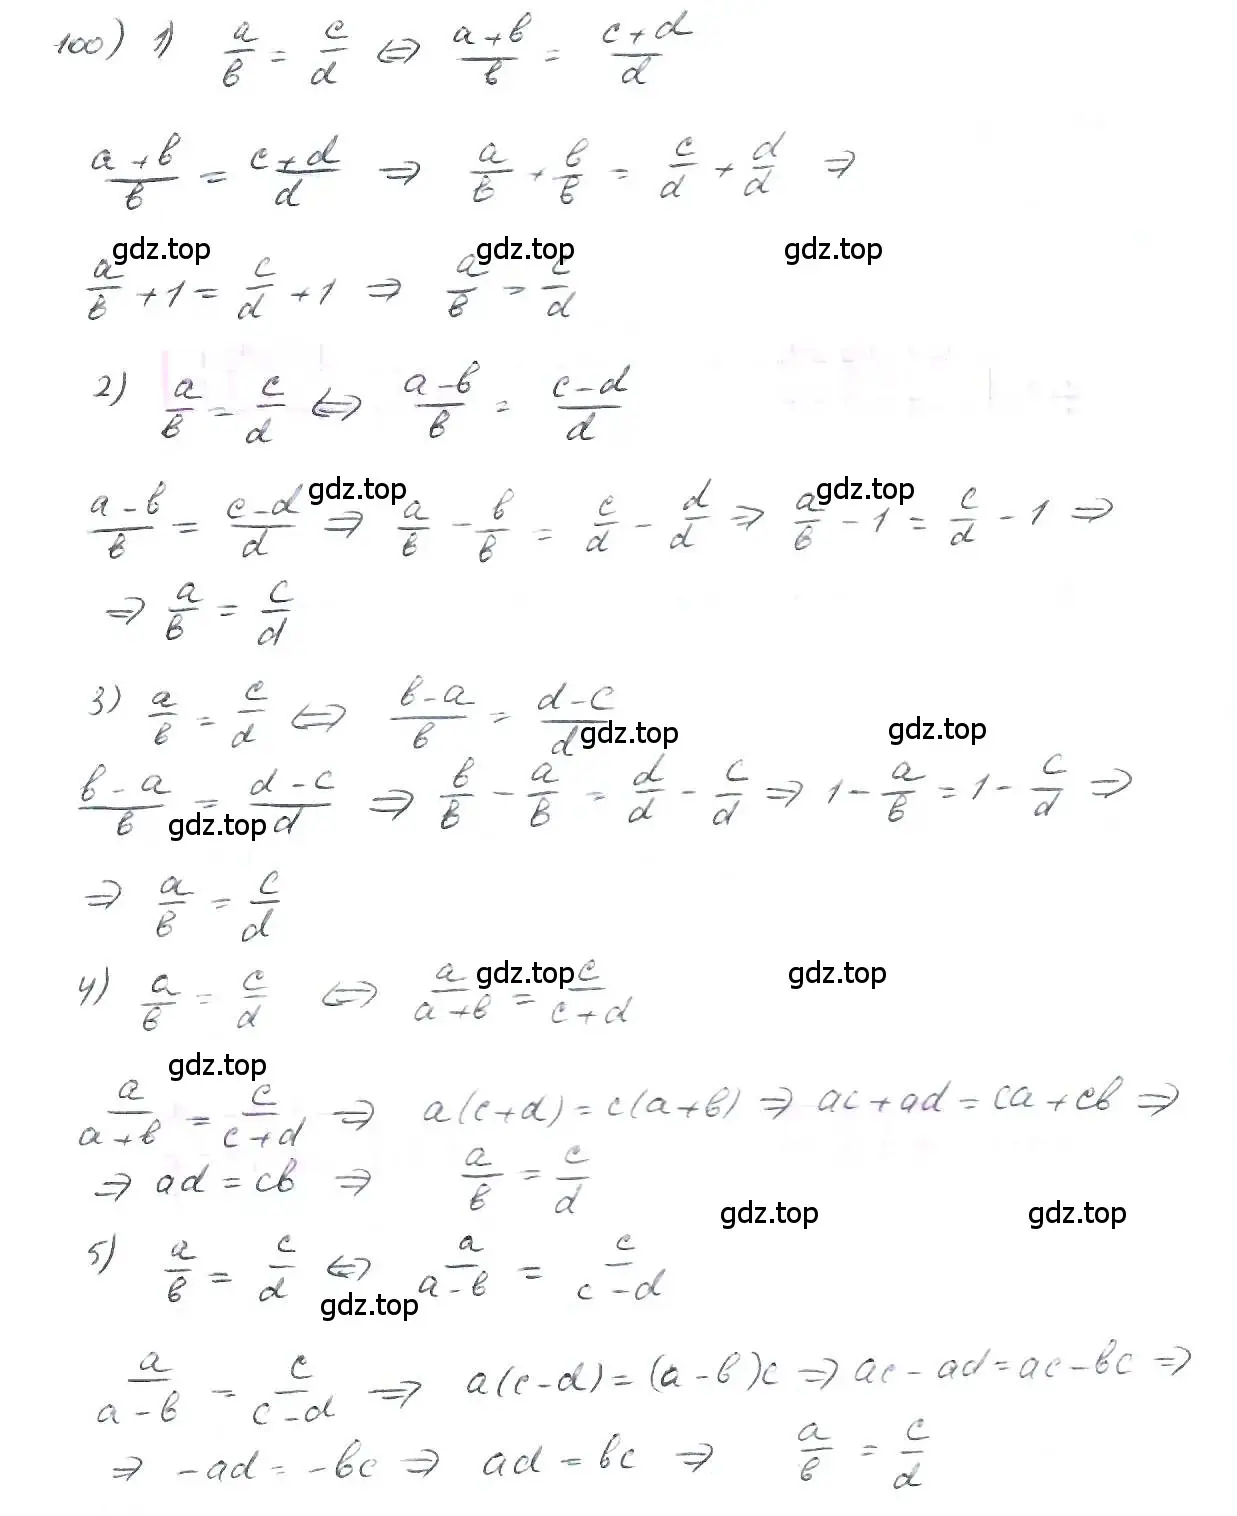 100) 1) a/b = c/d ⇔ (a+b)/b = (c+d)/d
(a+b)/b = (c+d)/d ⇒ a/b + b/b = c/d + d/d ⇒
gdz.top gdz.top gdz.top
a/b + 1 = c/d + 1 ⇒ a/b = c/d
2) a/b = c/d ⇔ (a-b)/b = (c-d)/d
gdz.top gdz.top
(a-b)/b = (c-d)/d ⇒ a/b - b/b = c/d - d/d ⇒ a/b - 1 = c/d - 1 ⇒
⇒ a/b = c/d
3) a/b = c/d ⇔ (b-a)/b = (d-c)/d
gdz.top gdz.top
(b-a)/b = (d-c)/d ⇒ b/b - a/b = d/d - c/d ⇒ 1 - a/b = 1 - c/d ⇒
gdz.top
⇒ a/b = c/d
4) a/b = c/d ⇔ a/(a+b) = c/(c+d)
gdz.top gdz.top
gdz.top
a/(a+b) = c/(c+d) ⇒ a(c+d) = c(a+b) ⇒ ac+ad = ca+cb ⇒
⇒ ad = cb ⇒ a/b = c/d
gdz.top gdz.top
5) a/b = c/d ⇔ a/(a-b) = c/(c-d)
gdz.top
a/(a-b) = c/(c-d) ⇒ a(c-d) = (a-b)c ⇒ ac-ad = ac-bc ⇒
⇒ -ad = -bc ⇒ ad = bc ⇒ a/b = c/d